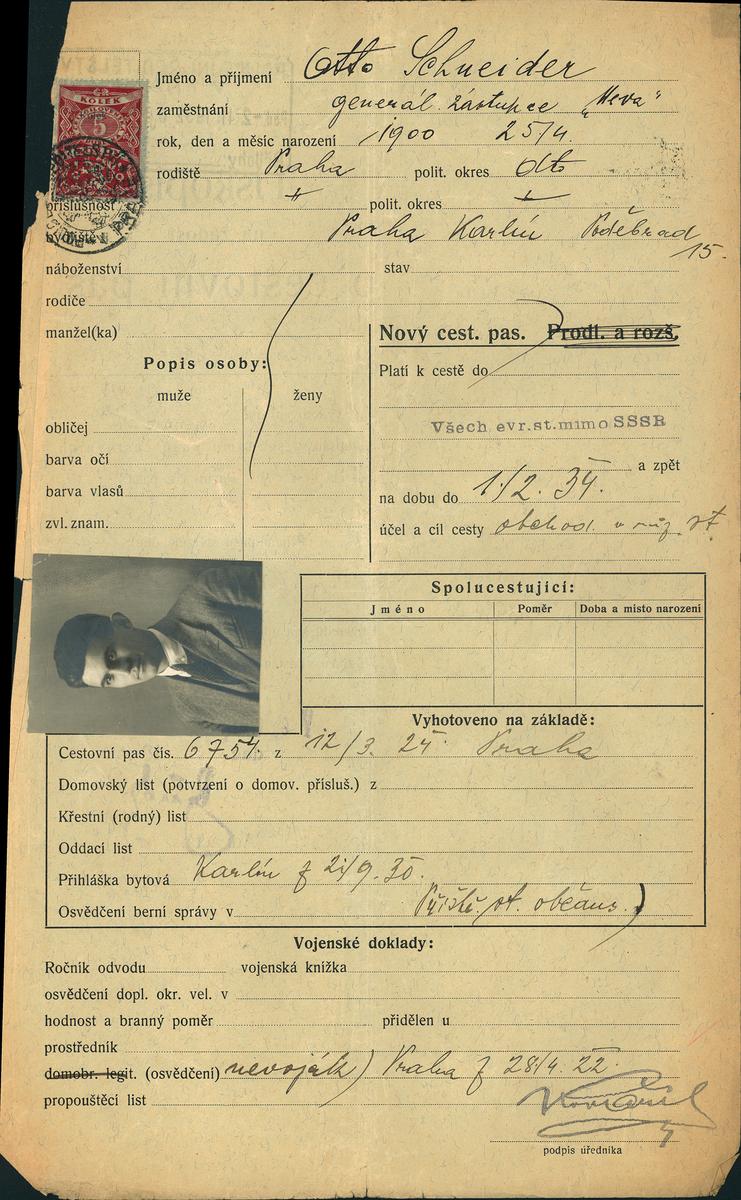 ČS
KOLEK
5
Jméno a příjmení Otto Schneider
zaměstnání generál. zástupce „Heva“
rok, den a měsíc narození 1900 25/4.
rodiště Praha polit. okres dto
příslušnost polit. okres
bydliště Praha Karlín Poděbrad
15.
náboženství stav
rodiče
manžel(ka)
Nový cest. pas. Prodl. a rozš.
Popis osoby:
Platí k cestě do
muže ženy
obličej
Všech evr.st.mimo SSSR
barva očí
a zpět
barva vlasů
na dobu do 1/2. 34.
zvl. znam.
účel a cíl cesty obchod. v růz. st.
Spolucestující:
Jméno Poměr Doba a místo narození
Vyhotoveno na základě:
Cestovní pas čís. 6754. z 12/3. 24. Praha
Domovský list (potvrzení o domov. přísluš.) z
Křestní (rodný) list
Oddací list
Přihláška bytová Karlín z 21/9. 30.
Osvědčení berní správy v st. občans.
Vojenské doklady:
Ročník odvodu vojenská knížka
osvědčení dopl. okr. vel. v
hodnost a branný poměr přidělen u
prostředník
domobr. legit. (osvědčení) nevoják) Praha z 28/4. 22.
propouštěcí list
podpis úředníka